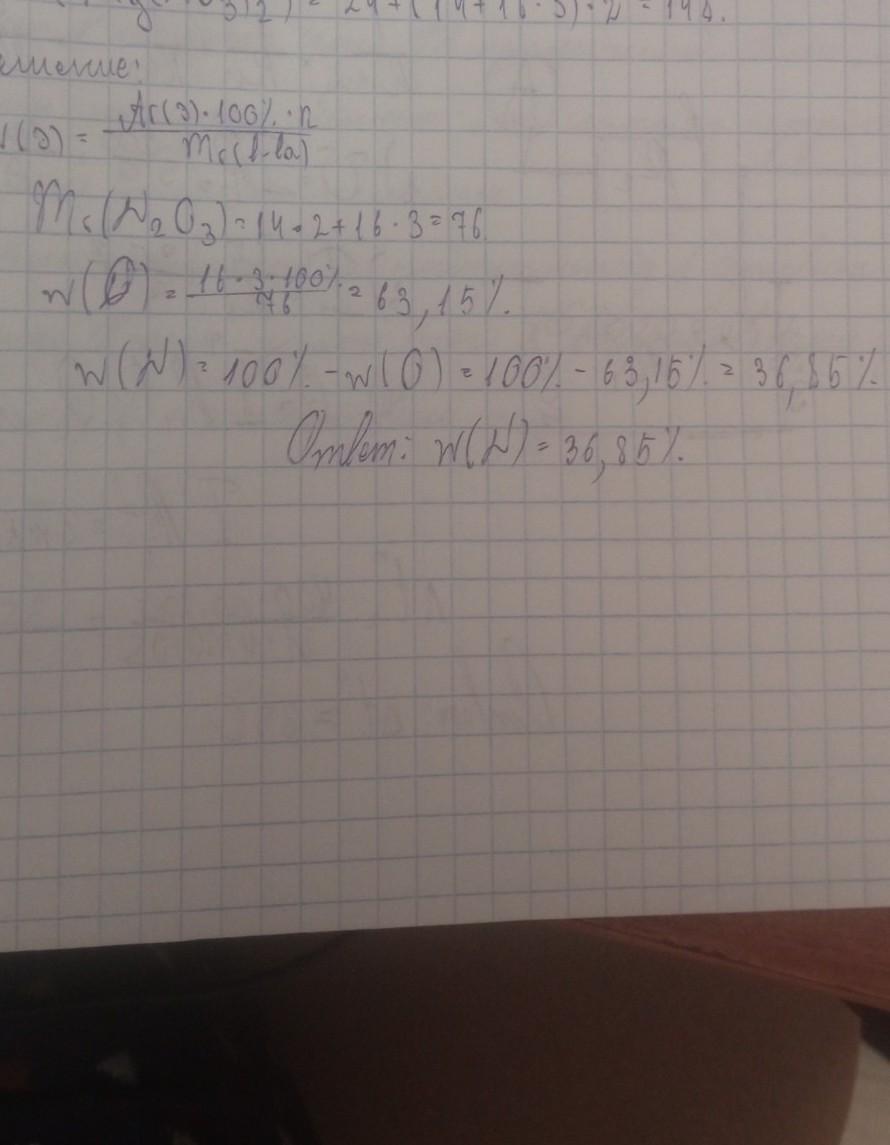 3)2) = 24+(14+16·3)·2 = 148.
шение:
(Э) = Ar(Э)·100%·n
Mr(в-ва)
Mr(N2O3)=14·2+16·3=76
w(O) = 16·3·100% = 63,15%.
76
w(N) = 100% - w(O) = 100% - 63,15% = 36,85%.
Ответ: w(N) = 36,85%.